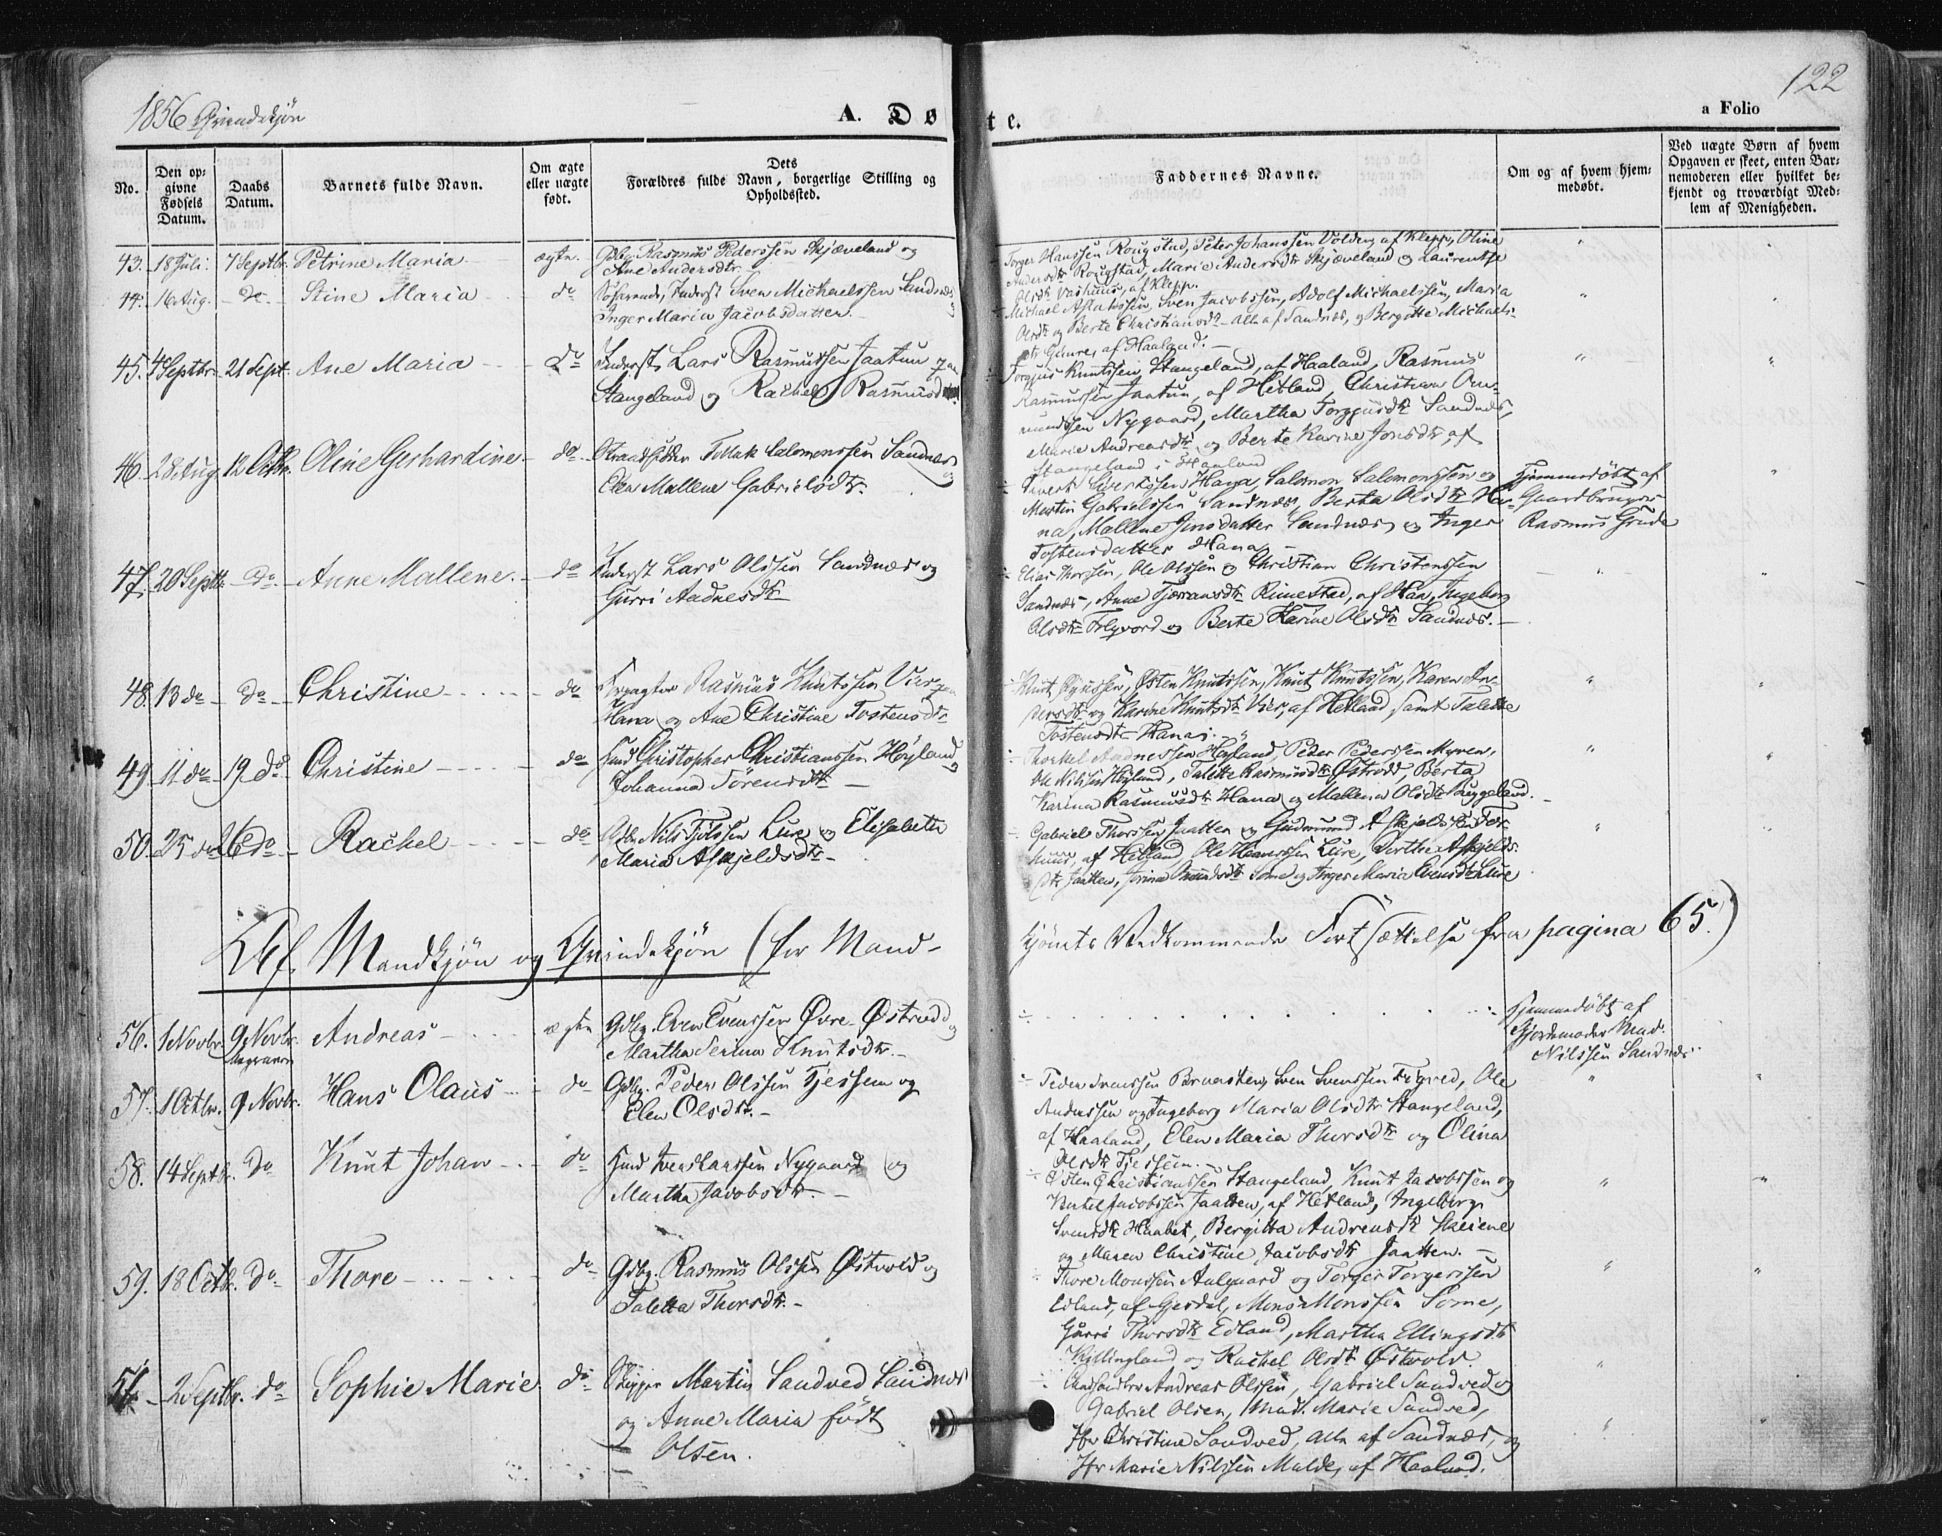 1856 Qvindekjön
A. Døbte.
a Folio
122
No.
Den op-
givne
Fødsels
Datum.
Daabs
Datum.
Barnets fulde Navn.
Om ægte
eller uægte
født.
Dets
Forældres fulde Navn, borgerlige Stilling og
Opholdssted.
Faddernes Navne.
Om og af hvem hjem-
medøbt.
Ved uægte Børn af hvem
Opgaven er skeet, enten Bar-
nemoderen eller hvilket be-
kjendt og troværdigt Med-
lem af Menigheden.
43. 18 Juli. 7 Septbr. Petrine Maria ægte. Gdbg. Rasmus Pederssen Skjæveland og
Ane Andersdtr.
Torger Hanssen Rougstad, Peter Johanssen Volden, af Klepp, Oline
Andersdtr Rougstad, Marie Andersdtr Skjæveland og Laurentse
Olsdtr Vashuus, af Klepp.
44. 16 Aug. do Stine Maria do Inderst Sven Michaelssen Sandnæs og
Inger Maria Jacobsdatter.
Michael Aslakssen, Sven Jacobssen, Adolf Michaelssen, Maria
Olsdtr og Berte Christiansdtr alle af Sandnæs, og Bergitte Michaels-
dtr Gimre, af Haaland.
45. 4 Septbr. 21 Sept. Ane Maria do Inderst Lars Rasmussen Jaatun paa
Stangeland og Rachel Rasmusd
Torjus Knutssen Stangeland, af Haaland, Rasmus
Rasmussen Jaatun, af Hetland, Christian Om-
mundssen Nygaard, Martha Torgjusdtr Sandnæs,
Marie Andreasdtr og Berte Karine Jonsdtr, af
Stangeland i Haaland
46. 28 Aug. 12 Octbr. Oline Gerhardine do Strandsidder Tollak Salomonssen Sandnæs og
Elen Mallene Gabrielsdtr.
Sivert Sivertssen Hana, Salomon Salomonssen og
Martin Gabrielssen Sandnæs, Berta Olsdtr Ha-
na, Mallene Jonsdatter Sandnæs og Inger
Tostensdatter Hana
Hjemmedöbt af
Gaardbruger
Rasmus Grude
47. 20 Septbr. do Anne Mallene do Inderst Lars Olssen Sandnæs og
Gurri Aadnesdtr
Elias Thorssen, Ole Olssen og Christian Christenssen
Sandnæs, Anne Tjæransdtr Rimestad, af Haa, Ingeborg
Olsdtr Folgvord og Berte Karine Olsdtr Sandnæs.
48. 13 do do Christine do Forpagter Rasmus Knutssen Vier paa
Hana og Ane Christine Tostensdtr
Knut Östen Knutssen, Knut Knutssen, Karen An-
dersdtr og Karine Knutsdtr Vier, af Hetland, samt Talette
Tostensdtr Hana.
49. 11 do 19 do Christine do Huusmd Christopher Christianssen Höyland og
Johanna Sörensdtr
Thorkel Aadnessen Høyland, Peder Pederssen Myren,
Ole Nilssen Höyland, Talette Rasmusdtr Østrød, Berta
Karina Rasmusdtr Hana og Mallena Olsdtr Buggeland.
50. 25 do 26 do Rachel do Gdbr Nils Tjölssen Lure og Elisabeth
Maria Askjeldsdtr
Gabriel Thorssen Jaatten og Gudmund Askjeldssen
af Hetland, Ole Hanssen Lure, Berthe Askjelds-
dtr Jaatten, Some og Inger Maria Evensdtr Lure
Mandkjön og Qvindekjön (for Mand-
kjönets Vedkommende Fortsættelse fra pagina 65.)
56. 1 Novbr. 9 Novbr. Andreas ægte Gdbg. Even Evenssen Övre-Öströdd og
Martha Serina Knutsdtr.
Hjemmedöbt af
Gjordmoder Mad.
Nilssen Sandnæs.
57. 1 Octbr. 9 Novbr. Hans Olaus do Gdbg. Peder Olssen Tjessem og
Elen Olsdtr.
Peder Braasten, Sven Svenssen, Ole
Anderssen og Ingeborg Maria Olsdtr Stangeland,
af Haaland, Elen Maria Thorsdtr og Olina
Olsdtr Tjessem.
58. 14 Septbr. do Knut Johan do Huusmd Iver Larssen Nygaard og
Martha Jacobsdtr.
Östen Christianssen Stangeland, Knut Jacobssen og
Jacobssen Jaatten, af Hetland, Ingeborg
Svendsdtr Haabet, Bergitta Andreasdtr
og Maren Christine Jacobsdtr Jaatten.
59. 18 Octbr. do Thore do Gdbg. Rasmus Olssen Østvold og
Taletta Thorsdtr.
Thore Monssen Aalgaard og Torger Torgerssen
Edland, af Gjesdal, Mons Monssen Some,
Gurri Thorsdtr Edland, Martha Ellingsdtr
Kyllingland og Rachel Olsdtr Østvold.
51. 2 Septbr. do Sophie Marie do Skipper Martin Sandved Sandnæs
og Anne Maria født
Olsen.
Andreas Olssen, Gabriel Sandved og
Gabriel Olsen, Mad. Marie Sandved,
Jfr Christine Sandved, alle af Sandnæs, og
Jfr Marie Nilssen Malde, af Haaland.